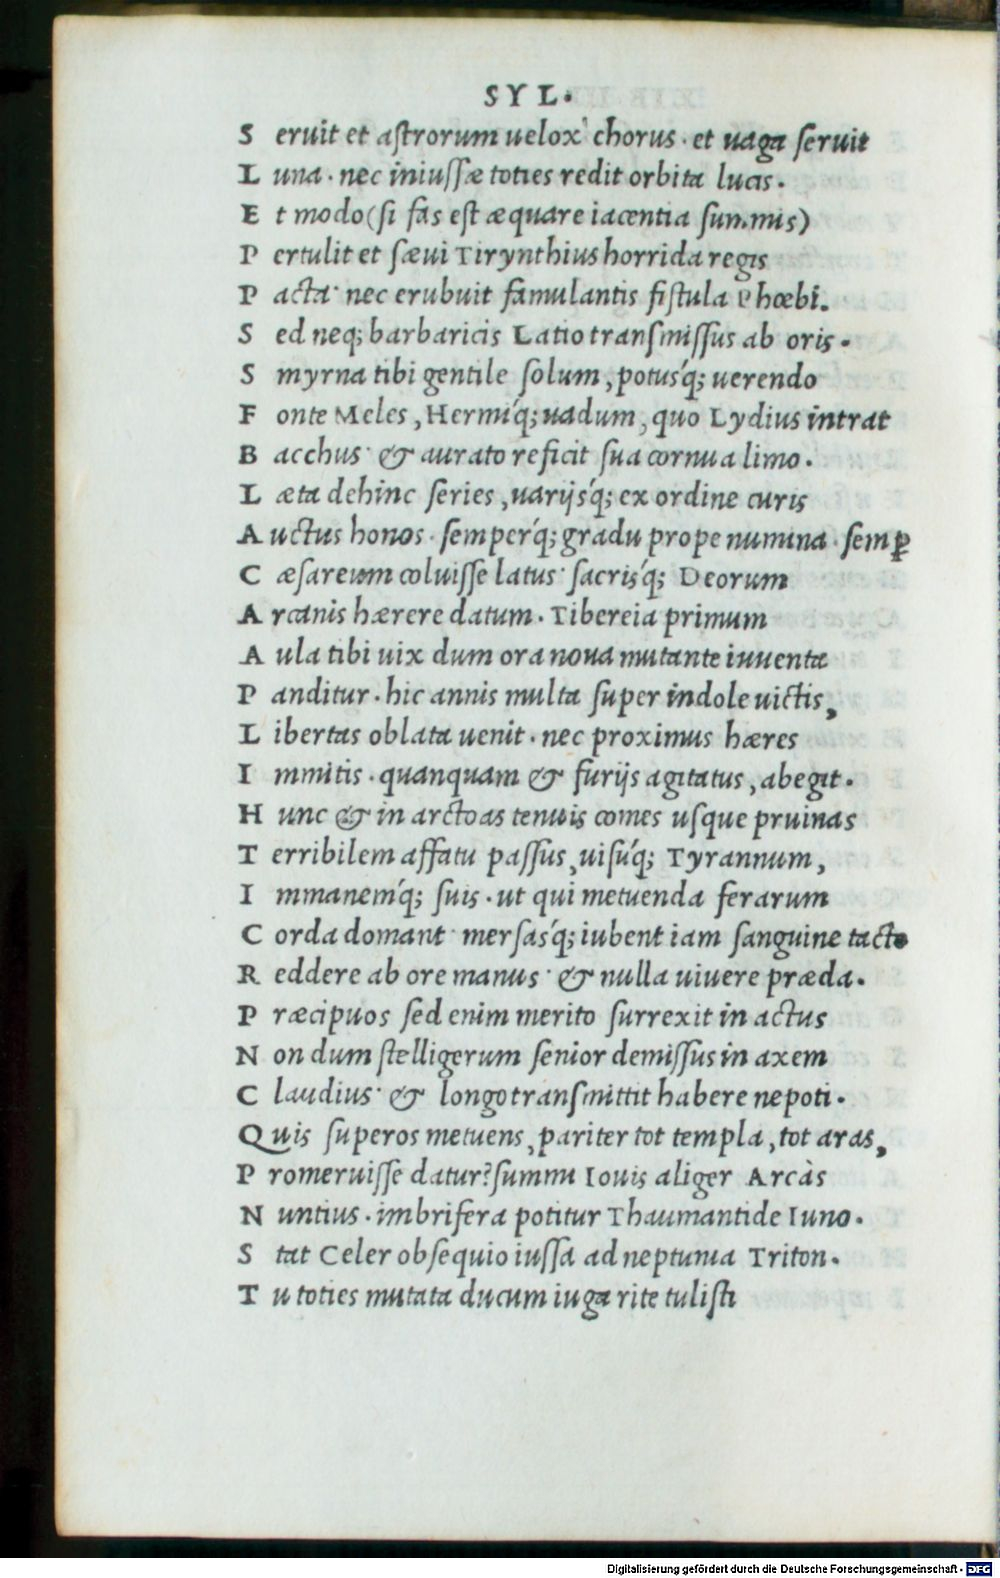 SYL.
S eruit et aſtrorum uelox chorus · et uaga ſeruit
L una · nec iniuſſæ toties redit orbita lucis ·
E t modo (ſi fas eſt æquare iacentia ſummis)
P ertulit et ſæui Tirynthius horrida regis
P acta· nec erubuit famulantis fiſtula Phœbi.
S ed neq; barbaricis Latio tranſmiſſus ab oris ·
S myrna tibi gentile ſolum, potusq́; uerendo
F onte Meles, Hermiq́; uadum, quo Lydius intrat
B acchus· & aurato reficit ſua cornua limo ·
L æta dehinc ſeries, uarijsq́; ex ordine curis
A uctus honos · ſemperq́; gradu prope numina · ſemꝑ
C æſareum coluiſſe latus· ſacrisq́; Deorum
A rcanis hærere datum · Tibereia primum
A ula tibi uix dum ora noua mutante iuuenta
P anditur · hic annis multa ſuper indole uictis,
L ibertas oblata uenit · nec proximus hæres
I mmitis · quanquam & furijs agitatus, abegit ·
H unc & in arctoas tenuis comes uſque pruinas
T erribilem affatu paſſus, uiſuq́; Tyrannum,
I mmanemq́; ſuis · ut qui metuenda ferarum
C orda domant· merſasq́; iubent iam ſanguine tacto
R eddere ab ore manus· & nulla uiuere præda ·
P ræcipuos ſed enim merito ſurrexit in actus
N on dum ſtelligerum ſenior demiſſus in axem
C laudius· & longo tranſmittit habere nepoti ·
Q uis ſuperos metuens, pariter tot templa, tot aras,
P romeruiſſe datur? ſummi Iouis aliger Arcàs
N untius · imbrifera potitur Thaumantide Iuno ·
S tat Celer obſequio iuſſa ad neptunia Triton ·
T u toties mutata ducum iuga rite tuliſti
Digitalisierung gefördert durch die Deutsche Forschungsgemeinschaft · DFG